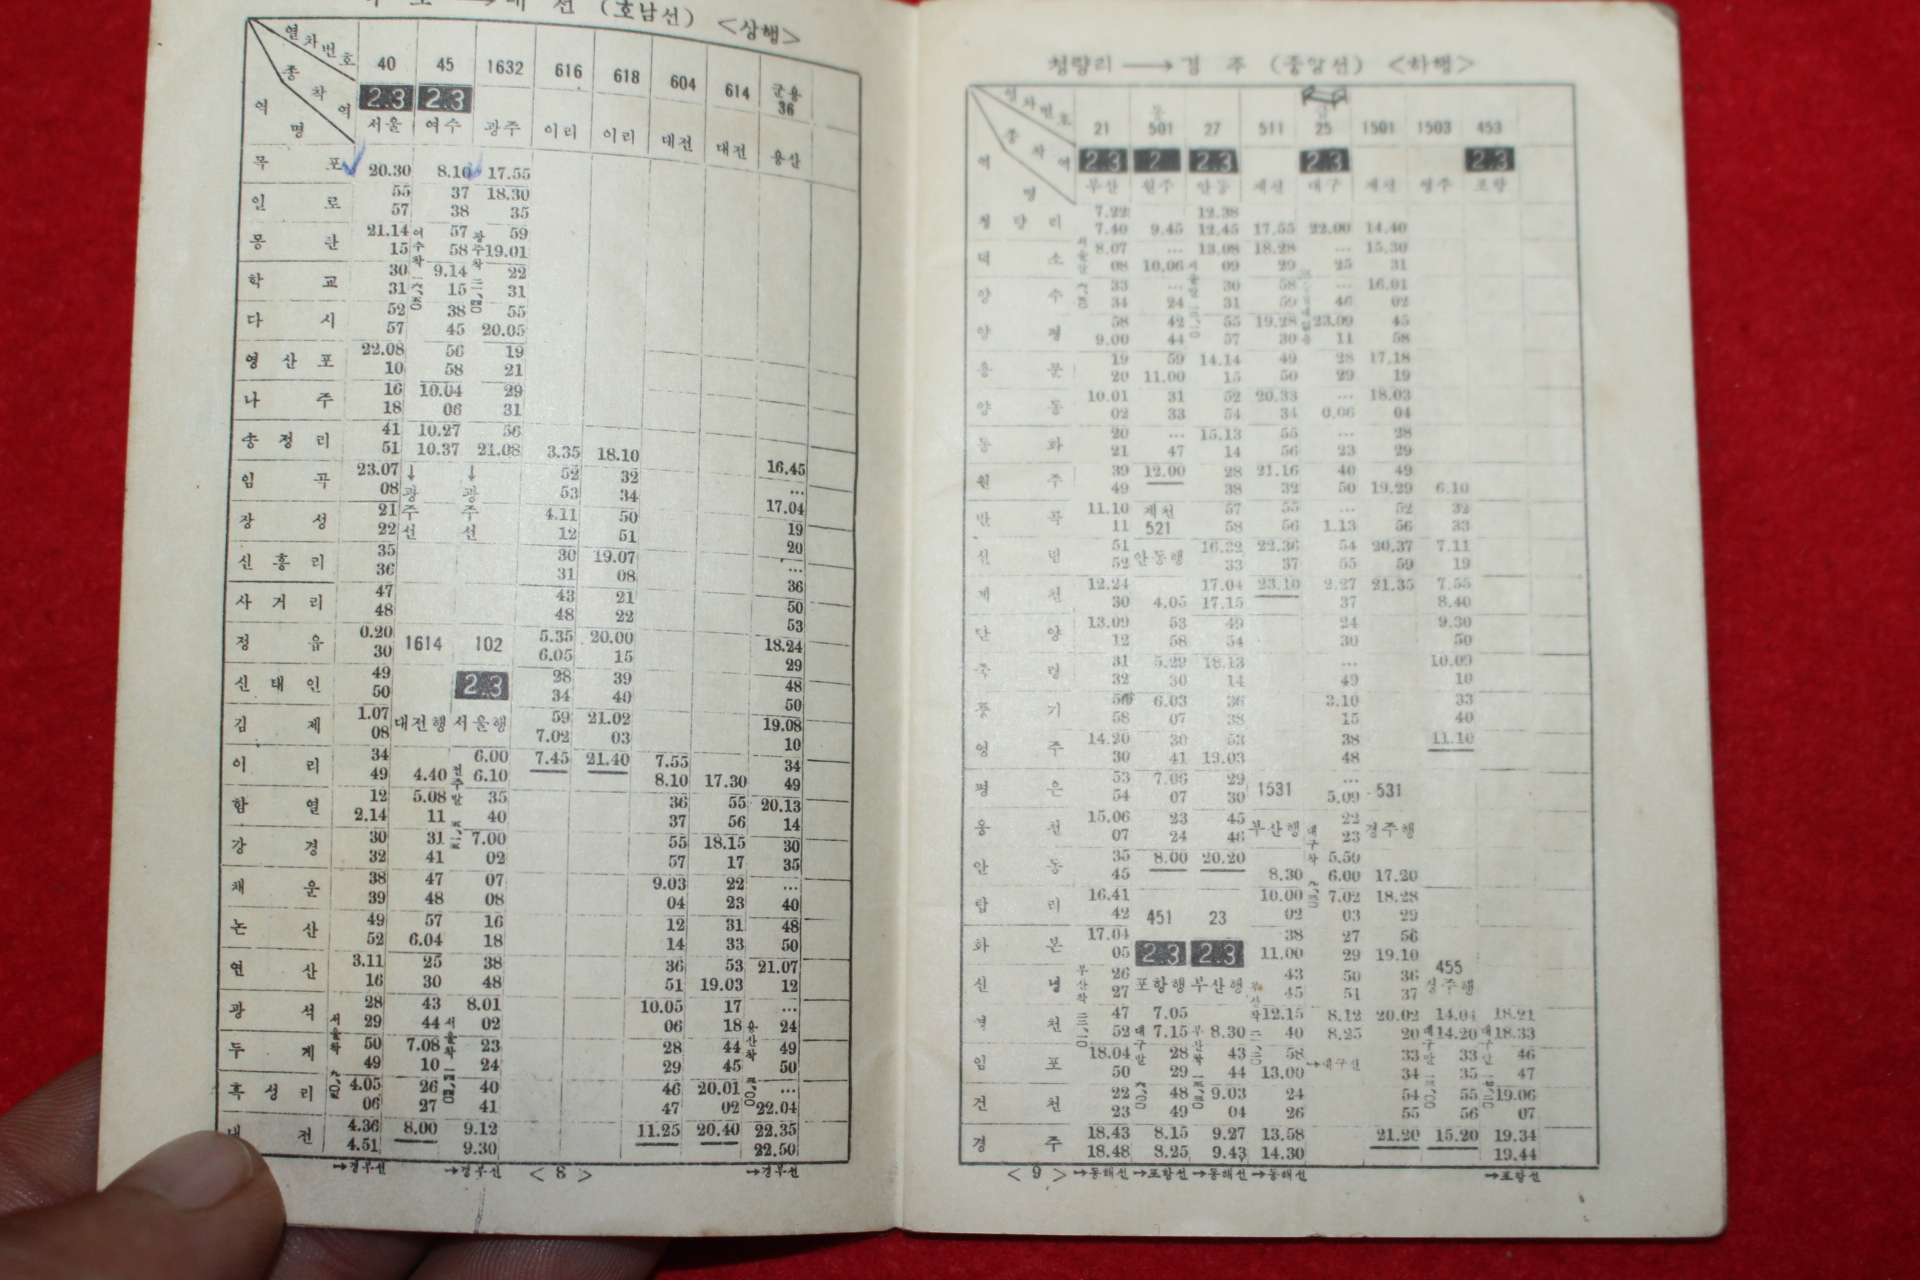 (호남선) <상행>
열차번호 40 45 1632 616 618 604 614 군용 36
2.3 2.3
종착역 서울 여수 광주 이리 이리 대전 대전 용산
역명
목포 20.30 8.10 17.55
55 37 18.30
인로 57 38 35
21.14 57 59
몽탄 15 58 19.01
30 9.14 22
학교 31 15 31
52 38 55
다시 57 45 20.05
22.08 56 19
영산포 10 58 21
16 10.04 29
나주 18 06 31
41 10.27 56
송정리 51 10.37 21.08 3.35 18.10 16.45
23.07 ↓ ↓ 52 32 ...
임곡 08 광 광 53 34 17.04
21 주 주 4.11 50 19
장성 22 선 선 12 51 20
35 30 19.07 ...
신흥리 36 31 08 36
47 43 21 50
사거리 48 48 22 53
0.20 1614 102 5.35 20.00 18.24
정읍 30 6.05 15 29
49 2.3 28 39 48
신태인 50 34 40 50
1.07 대전행 서울행 59 21.02 19.08
김제 08 7.02 03 10
34 6.00 7.45 21.40 7.55 34
이리 49 4.40 6.10 8.10 17.30 49
12 5.08 35 36 55 20.13
함열 2.14 11 40 37 56 14
30 31 7.00 55 18.15 30
강경 32 41 02 57 17 35
38 47 07 9.03 22 ...
채운 39 48 08 04 23 40
49 57 16 12 31 48
논산 52 6.04 18 14 33 50
3.11 25 38 36 53 21.07
연산 16 30 48 51 19.03 12
28 43 8.01 10.05 17 ...
광석 29 44 02 06 18 24
50 7.08 23 28 44 49
두계 49 10 24 29 45 50
4.05 26 40 46 20.01 ...
흑성리 06 27 41 47 02 22.04
4.36 8.00 9.12 11.25 20.40 22.35
대전 4.51 9.30 22.50
→경부선 →경부선 < 8 > →경부선
청량리 → 경주 (중앙선) <하행>
열차번호 21 501 27 511 25 1501 1503 453
2.3 2 2.3 2.3 2.3
종착역 부산 원주 안동 제천 대구 제천 영주 포항
역명
7.22 12.38
청량리 7.40 9.45 12.45 17.55 22.00 14.40
8.07 ... 13.08 18.28 ... 15.30
덕소 08 10.06 09 29 25 31
33 ... 30 58 ... 16.01
양수 34 24 31 59 46 02
58 42 55 19.28 23.09 45
양평 9.00 44 57 30 11 58
19 59 14.14 49 28 17.18
용문 20 11.00 15 50 29 19
10.01 31 52 20.33 ... 18.03
양동 02 33 54 34 0.06 04
20 ... 15.13 55 ... 28
동화 21 47 14 56 23 29
39 12.00 28 21.16 40 49
원주 49 38 32 50 19.29 6.10
11.10 제천 57 55 ... 52 32
반곡 11 521 58 56 1.13 56 33
51 안동행 16.32 22.36 54 20.37 7.11
신림 52 33 37 55 59 19
12.24 17.04 23.10 2.27 21.35 7.55
제천 30 4.05 17.15 37 8.40
13.09 53 49 24 9.30
단양 12 58 54 30 50
31 5.29 18.13 ... 10.09
죽령 32 30 14 49 10
56 6.03 36 3.10 33
풍기 58 07 38 15 40
14.20 30 53 38 11.10
영주 30 41 19.03 48
53 7.06 29 1531 ... 531
평은 54 07 30 5.09
15.06 23 45 부산행 22 경주행
옹천 07 24 46 23
35 8.00 20.20 5.50
안동 45 8.30 6.00 17.20
16.41 10.00 7.02 18.28
탑리 42 451 23 02 03 29
17.04 38 27 56
화본 05 2.3 2.3 11.00 29 19.10
26 43 50 36 455
신녕 27 포항행 부산행 45 51 37 경주행
47 7.05 12.15 8.12 20.02 14.04 18.21
영천 52 7.15 8.30 40 8.25 20 14.20 18.33
18.04 28 43 58 →대구선 33 33 46
임포 50 29 44 13.00 34 35 47
22 48 9.03 24 54 55 19.06
건천 23 49 04 26 55 56 07
18.43 8.15 9.27 13.58 21.20 15.20 19.34
경주 18.48 8.25 9.43 14.30 19.44
< 9 > →동해선 →포항선 →동해선 →동해선 →포항선